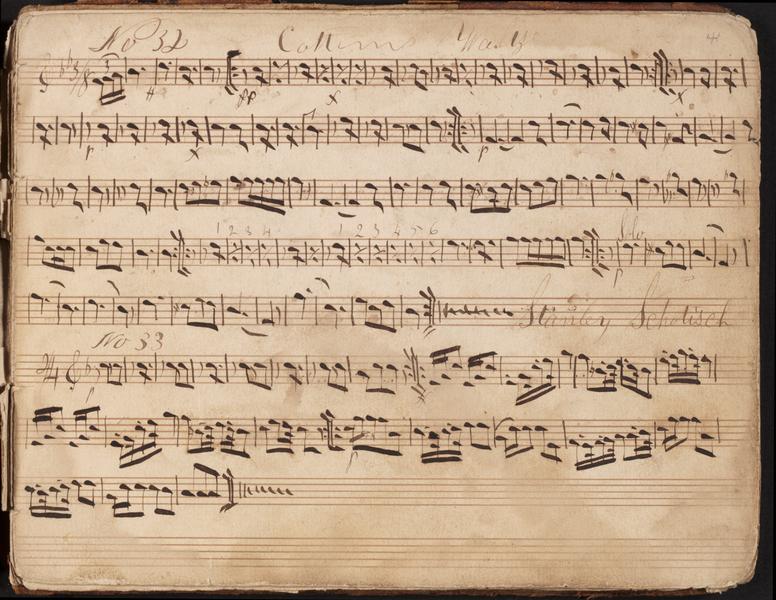 No 32 Waltz
pp
p
p
1 2 3 4 1 2 3 4 5 6
p
Stanley Schotisch
No 33
2/4
p
p